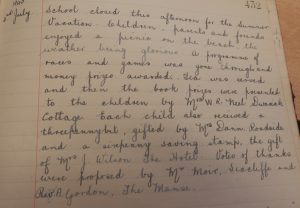 452
2nd July
School closed this afternoon for the Summer
Vacation. Children, parents and friends
enjoyed a picnic on the beach the
weather being glorious. A programme of
races and games was gone through and
money prizes awarded. Tea was served
and then the book prizes were presented
to the children by Mrs W.R. Neil
Cottage. Each child also received a
threepenny bit, gifted by Mrs Dann, Roadside
and a sixpenny saving stamp, the gift
of Mrs J. Wilson The Hotel. Votes of thanks
were proposed by Mr Moir, Seacliffe and
Rev A. Gordon, The Manse.